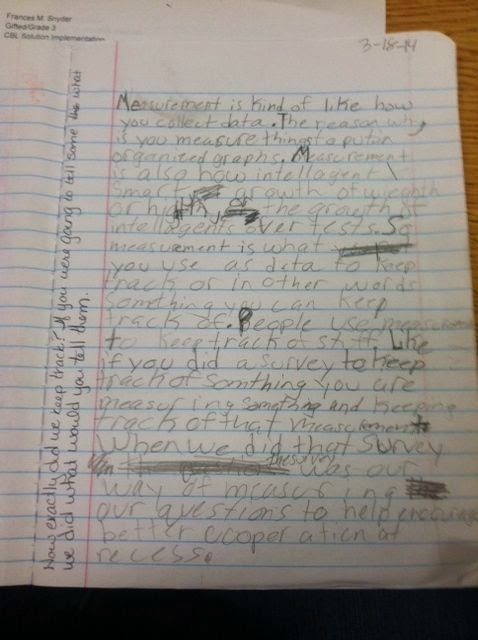 Frances M. Snyder
Gifted/Grade 3
CBL Solution Implementation
3-18-14
Measurement is kind of like how
you collect data. The reason why,
is you measure things to putin
organized graphs. Measurement
is also how intellagent \
smart growth of wieghth
or highth or the growth of
intellagents over tests. So
measurement is what
you use as data to keep
track or in other words
something you can keep
track of. People use measurement
to keep track of stuff. Like
if you did a survey to keep
track of somthing you are
measuring somthing and keeping
track of that measurement
When we did that survey
the survey was our
way of measuring
our questions to help encourage
better cooperation at
recess.
How exactly did we keep track? If you were going to tell some what
we did what would you tell them.